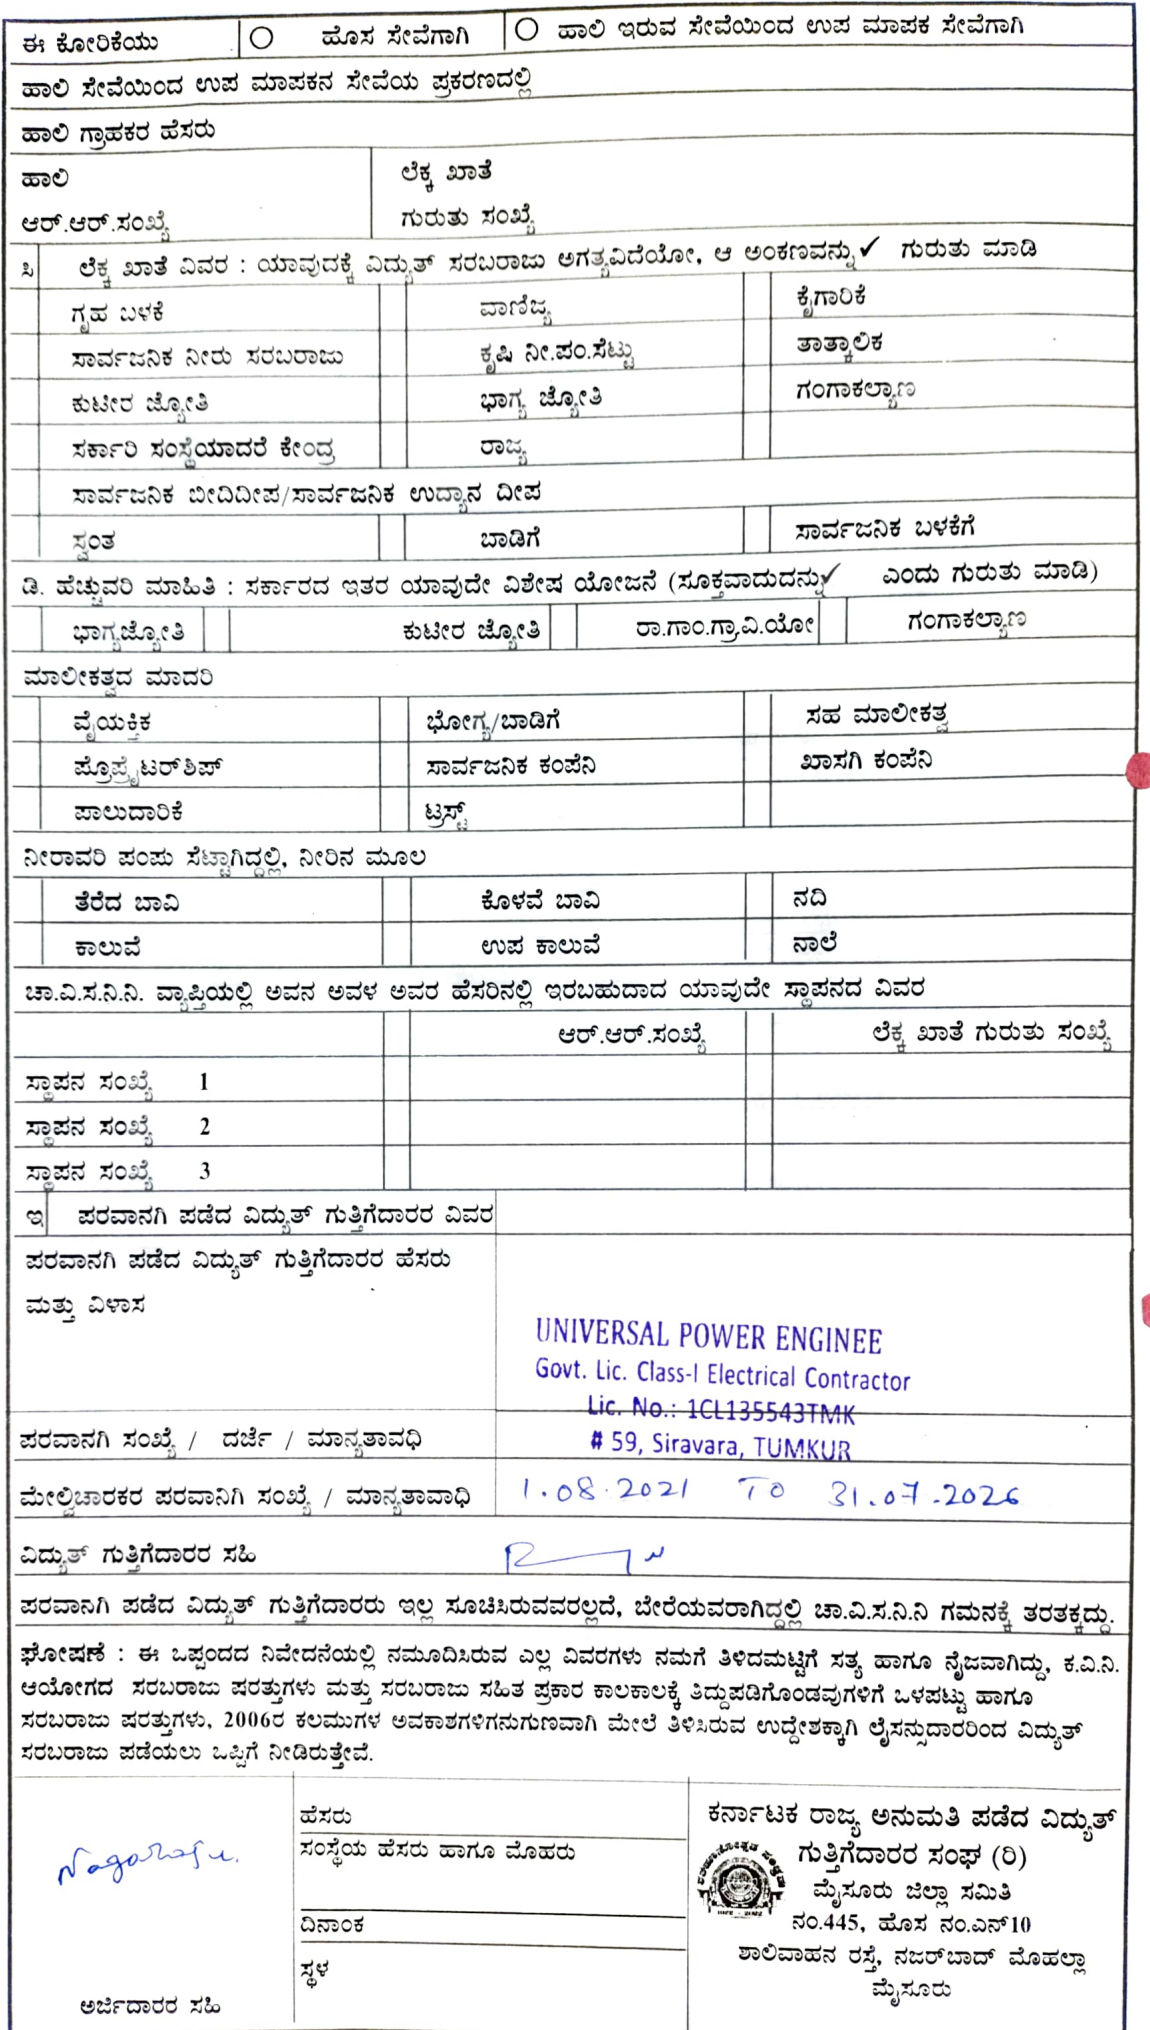 ಈ ಕೋರಿಕೆಯು ಹೊಸ ಸೇವೆಗಾಗಿ ಹಾಲಿ ಇರುವ ಸೇವೆಯಿಂದ ಉಪ ಮಾಪಕ ಸೇವೆಗಾಗಿ
ಹಾಲಿ ಸೇವೆಯಿಂದ ಉಪ ಮಾಪಕನ ಸೇವೆಯ ಪ್ರಕರಣದಲ್ಲಿ
ಹಾಲಿ ಗ್ರಾಹಕರ ಹೆಸರು
ಹಾಲಿ ಲೆಕ್ಕ ಖಾತೆ
ಆರ್.ಆರ್.ಸಂಖ್ಯೆ ಗುರುತು ಸಂಖ್ಯೆ
ಸಿ ಲೆಕ್ಕ ಖಾತೆ ವಿವರ : ಯಾವುದಕ್ಕೆ ವಿದ್ಯುತ್ ಸರಬರಾಜು ಅಗತ್ಯವಿದೆಯೋ, ಆ ಅಂಕಣವನ್ನು ✓ ಗುರುತು ಮಾಡಿ
ಗೃಹ ಬಳಕೆ ವಾಣಿಜ್ಯ ಕೈಗಾರಿಕೆ
ಸಾರ್ವಜನಿಕ ನೀರು ಸರಬರಾಜು ಕೃಷಿ ನೀ.ಪಂ.ಸೆಟ್ಟು ತಾತ್ಕಾಲಿಕ
ಕುಟೀರ ಜ್ಯೋತಿ ಭಾಗ್ಯ ಜ್ಯೋತಿ ಗಂಗಾಕಲ್ಯಾಣ
ಸರ್ಕಾರಿ ಸಂಸ್ಥೆಯಾದರೆ ಕೇಂದ್ರ ರಾಜ್ಯ
ಸಾರ್ವಜನಿಕ ಬೀದಿದೀಪ/ಸಾರ್ವಜನಿಕ ಉದ್ಯಾನ ದೀಪ
ಸ್ವಂತ ಬಾಡಿಗೆ ಸಾರ್ವಜನಿಕ ಬಳಕೆಗೆ
ಡಿ. ಹೆಚ್ಚುವರಿ ಮಾಹಿತಿ : ಸರ್ಕಾರದ ಇತರ ಯಾವುದೇ ವಿಶೇಷ ಯೋಜನೆ (ಸೂಕ್ತವಾದುದನ್ನು ✓ ಎಂದು ಗುರುತು ಮಾಡಿ)
ಭಾಗ್ಯಜ್ಯೋತಿ ಕುಟೀರ ಜ್ಯೋತಿ ರಾ.ಗಾಂ.ಗ್ರಾ.ವಿ.ಯೋ ಗಂಗಾಕಲ್ಯಾಣ
ಮಾಲೀಕತ್ವದ ಮಾದರಿ
ವೈಯಕ್ತಿಕ ಭೋಗ್ಯ/ಬಾಡಿಗೆ ಸಹ ಮಾಲೀಕತ್ವ
ಪ್ರೊಪ್ರೈಟರ್‌ಶಿಪ್ ಸಾರ್ವಜನಿಕ ಕಂಪೆನಿ ಖಾಸಗಿ ಕಂಪೆನಿ
ಪಾಲುದಾರಿಕೆ ಟ್ರಸ್ಟ್
ನೀರಾವರಿ ಪಂಪು ಸೆಟ್ಟಾಗಿದ್ದಲ್ಲಿ, ನೀರಿನ ಮೂಲ
ತೆರೆದ ಬಾವಿ ಕೊಳವೆ ಬಾವಿ ನದಿ
ಕಾಲುವೆ ಉಪ ಕಾಲುವೆ ನಾಲೆ
ಚಾ.ವಿ.ಸ.ನಿ.ನಿ. ವ್ಯಾಪ್ತಿಯಲ್ಲಿ ಅವನ ಅವಳ ಅವರ ಹೆಸರಿನಲ್ಲಿ ಇರಬಹುದಾದ ಯಾವುದೇ ಸ್ಥಾಪನದ ವಿವರ
ಆರ್.ಆರ್.ಸಂಖ್ಯೆ ಲೆಕ್ಕ ಖಾತೆ ಗುರುತು ಸಂಖ್ಯೆ
ಸ್ಥಾಪನ ಸಂಖ್ಯೆ 1
ಸ್ಥಾಪನ ಸಂಖ್ಯೆ 2
ಸ್ಥಾಪನ ಸಂಖ್ಯೆ 3
ಇ ಪರವಾನಗಿ ಪಡೆದ ವಿದ್ಯುತ್ ಗುತ್ತಿಗೆದಾರರ ವಿವರ
ಪರವಾನಗಿ ಪಡೆದ ವಿದ್ಯುತ್ ಗುತ್ತಿಗೆದಾರರ ಹೆಸರು
ಮತ್ತು ವಿಳಾಸ
UNIVERSAL POWER ENGINEE
Govt. Lic. Class-I Electrical Contractor
Lic. No.: 1CL135543TMK
# 59, Siravara, TUMKUR
ಪರವಾನಗಿ ಸಂಖ್ಯೆ / ದರ್ಜೆ / ಮಾನ್ಯತಾವಧಿ
ಮೇಲ್ವಿಚಾರಕರ ಪರವಾನಿಗಿ ಸಂಖ್ಯೆ / ಮಾನ್ಯತಾವಾಧಿ 1.08.2021 TO 31.07.2026
ವಿದ್ಯುತ್ ಗುತ್ತಿಗೆದಾರರ ಸಹಿ
ಪರವಾನಗಿ ಪಡೆದ ವಿದ್ಯುತ್ ಗುತ್ತಿಗೆದಾರರು ಇಲ್ಲ ಸೂಚಿಸಿರುವವರಲ್ಲದೆ, ಬೇರೆಯವರಾಗಿದ್ದಲ್ಲಿ ಚಾ.ವಿ.ಸ.ನಿ.ನಿ ಗಮನಕ್ಕೆ ತರತಕ್ಕದ್ದು.
ಘೋಷಣೆ : ಈ ಒಪ್ಪಂದದ ನಿವೇದನೆಯಲ್ಲಿ ನಮೂದಿಸಿರುವ ಎಲ್ಲ ವಿವರಗಳು ನಮಗೆ ತಿಳಿದಮಟ್ಟಿಗೆ ಸತ್ಯ ಹಾಗೂ ನೈಜವಾಗಿದ್ದು, ಕ.ವಿ.ನಿ.
ಆಯೋಗದ ಸರಬರಾಜು ಷರತ್ತುಗಳು ಮತ್ತು ಸರಬರಾಜು ಸಹಿತ ಪ್ರಕಾರ ಕಾಲಕಾಲಕ್ಕೆ ತಿದ್ದುಪಡಿಗೊಂಡವುಗಳಿಗೆ ಒಳಪಟ್ಟು ಹಾಗೂ
ಸರಬರಾಜು ಷರತ್ತುಗಳು, 2006ರ ಕಲಮುಗಳ ಅವಕಾಶಗಳಿಗನುಗುಣವಾಗಿ ಮೇಲೆ ತಿಳಿಸಿರುವ ಉದ್ದೇಶಕ್ಕಾಗಿ ಲೈಸನ್ಸುದಾರರಿಂದ ವಿದ್ಯುತ್
ಸರಬರಾಜು ಪಡೆಯಲು ಒಪ್ಪಿಗೆ ನೀಡಿರುತ್ತೇವೆ.
Nagaraju.
ಅರ್ಜಿದಾರರ ಸಹಿ
ಹೆಸರು
ಸಂಸ್ಥೆಯ ಹೆಸರು ಹಾಗೂ ಮೊಹರು
ದಿನಾಂಕ
ಸ್ಥಳ
ಕರ್ನಾಟಕ ರಾಜ್ಯ ಅನುಮತಿ ಪಡೆದ ವಿದ್ಯುತ್
ಗುತ್ತಿಗೆದಾರರ ಸಂಘ (ರಿ)
ಮೈಸೂರು ಜಿಲ್ಲಾ ಸಮಿತಿ
ನಂ.445, ಹೊಸ ನಂ.ಎನ್10
ಶಾಲಿವಾಹನ ರಸ್ತೆ, ನಜರ್‌ಬಾದ್ ಮೊಹಲ್ಲಾ
ಮೈಸೂರು